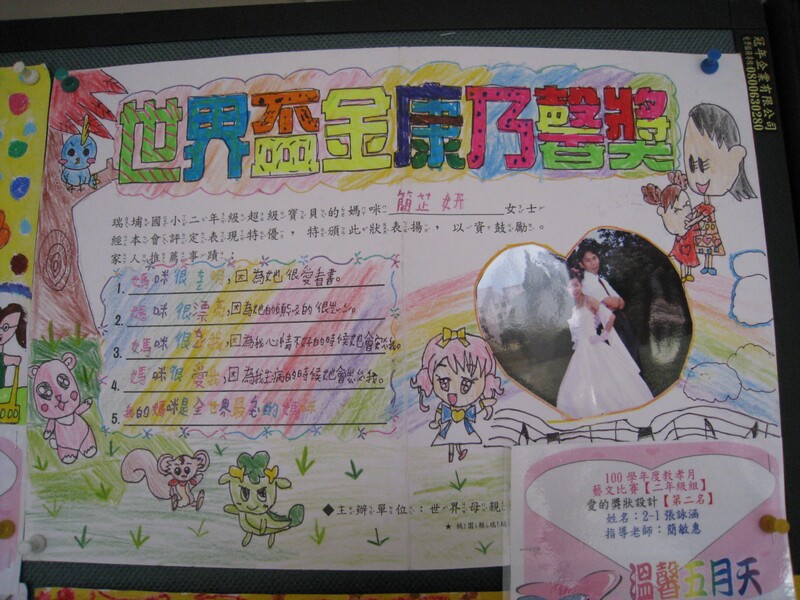 世界盃金康乃馨獎
冠年企業有限公司
0800630280
瑞埔國小二年級超級寶貝的媽咪 簡芷妍 女士
經本會評定表現特優，特頒此狀表揚，以資鼓勵。
家人推薦事蹟：
1. 媽咪很聰明，因為她很愛看書。
2. 媽咪很漂亮，因為她的
3. 媽咪很 我，因為我心情不好的時候她會安慰我。
4. 媽咪很愛我，因為我生病的時候她會 我。
5. 我的媽咪是全世界最 的媽咪
◆主辦單位：世界母親
100學年度教孝月
藝文比賽【二年級組】
愛的獎狀設計【第二名】
姓名：2-1張詠涵
指導老師：簡敏惠
溫馨五月天